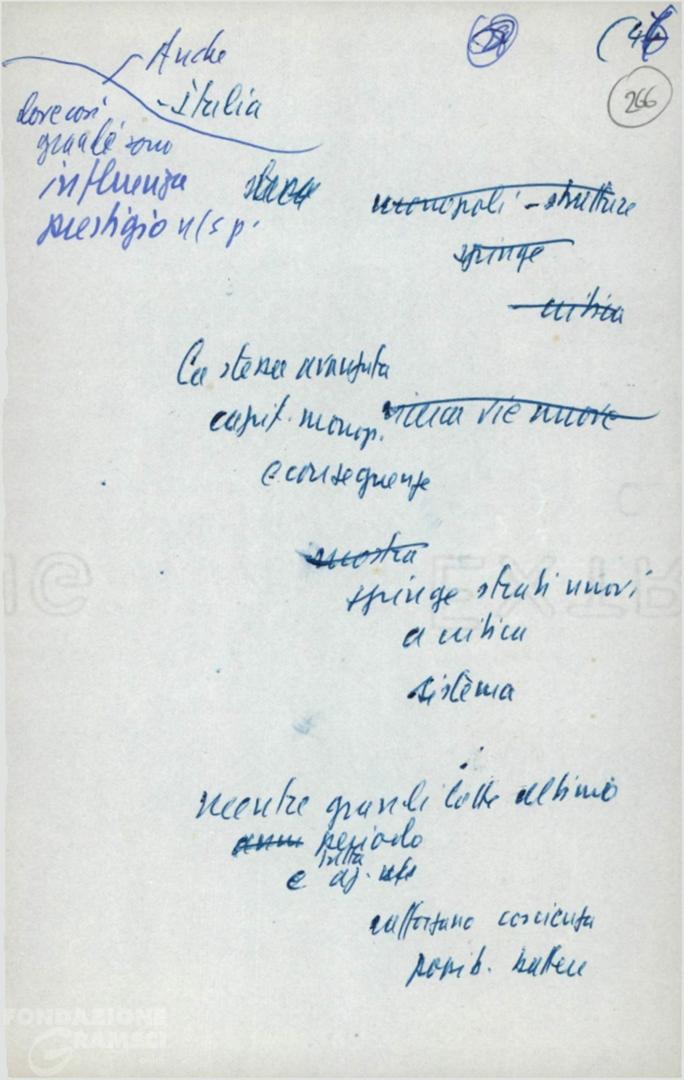 (46
266
Anche
- Italia
dove così
grande sono
influenza
prestigio n/s p.
monopoli - strutture
spinge
critica
La stessa avanzata
capit. monop.
vie nuove
e conseguenze
mostra
spinge strati nuovi
a critica
sistema
mentre grandi lotte ultimo
anni periodo
e az.
rafforzano coscienza
possib. battere
FONDAZIONE
GRAMSCI